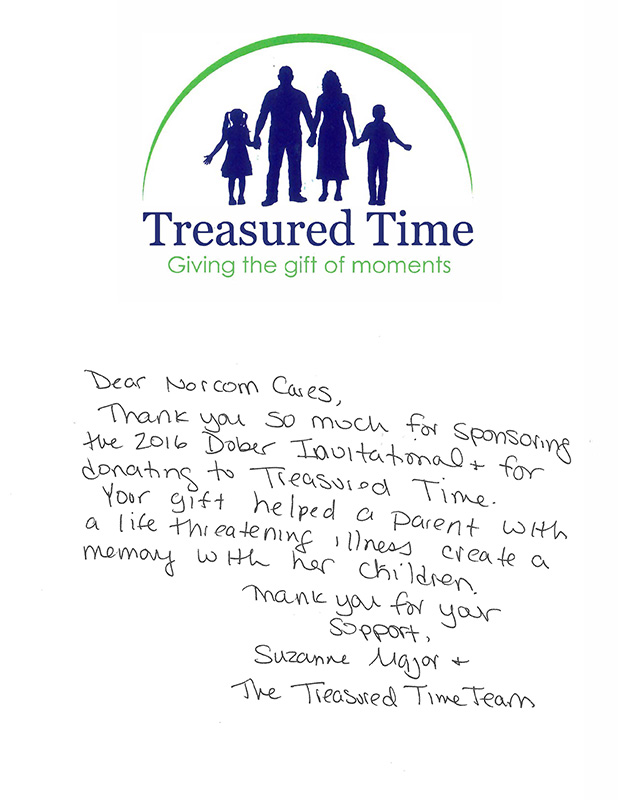 Treasured Time
Giving the gift of moments
Dear Norcom Cares,
Thank you so much for sponsoring
the 2016 Dober Invitational + for
donating to Treasured Time.
Your gift helped a parent with
a life threatening illness create a
memory with her children.
Thank you for your
support,
Suzanne Major +
The Treasured Time Team